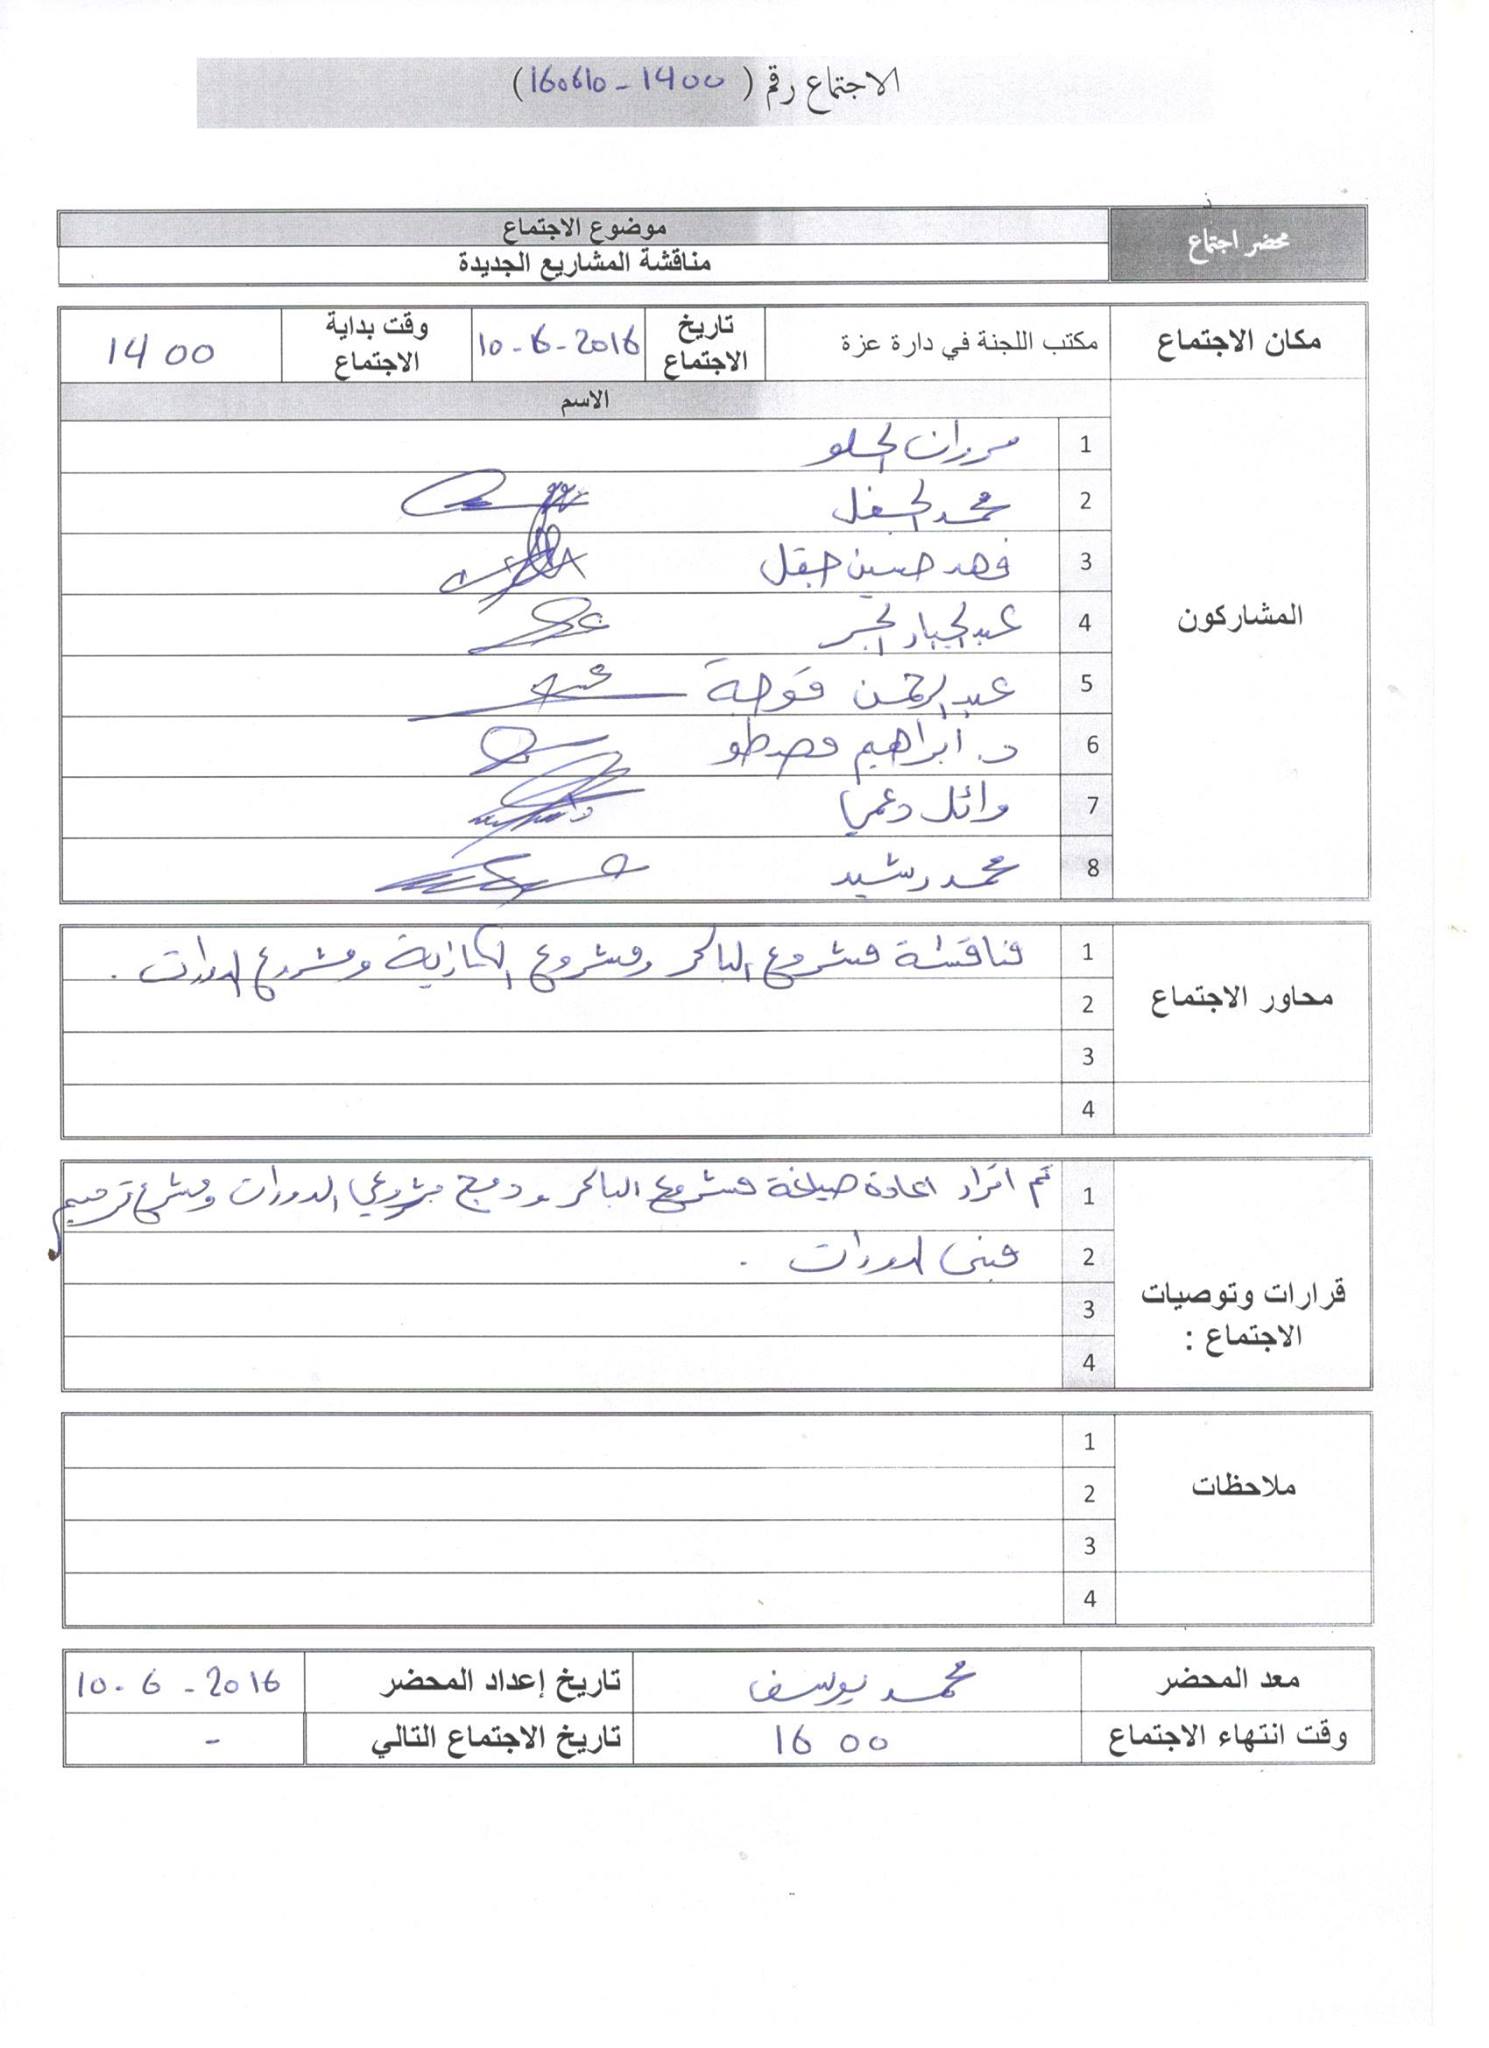 الاجتماع رقم ( 160610 - 1400 )
محضر اجتماع
موضوع الاجتماع
مناقشة المشاريع الجديدة
مكان الاجتماع مكتب اللجنة في دارة عزة تاريخ الاجتماع 10-6-2016 وقت بداية الاجتماع 14 00
المشاركون
الاسم
1 الحلو
2 محمد
3 فهد حسين
4 عبد الجبار
5 عبد الرحمن
6 د. ابراهيم
7 وائل
8 محمد رشيد
محاور الاجتماع
1 مناقشة مشروع الباكر ومشروع ومشروع الدورات .
2
3
4
قرارات وتوصيات الاجتماع :
1 تم اقرار اعادة صياغة مشروع الباكر ودمج مشروعي الدورات ومشروع ترميم
2 مبنى الدورات .
3
4
ملاحظات
1
2
3
4
معد المحضر محمد يوسف تاريخ إعداد المحضر 10-6-2016
وقت انتهاء الاجتماع 16 00 تاريخ الاجتماع التالي -